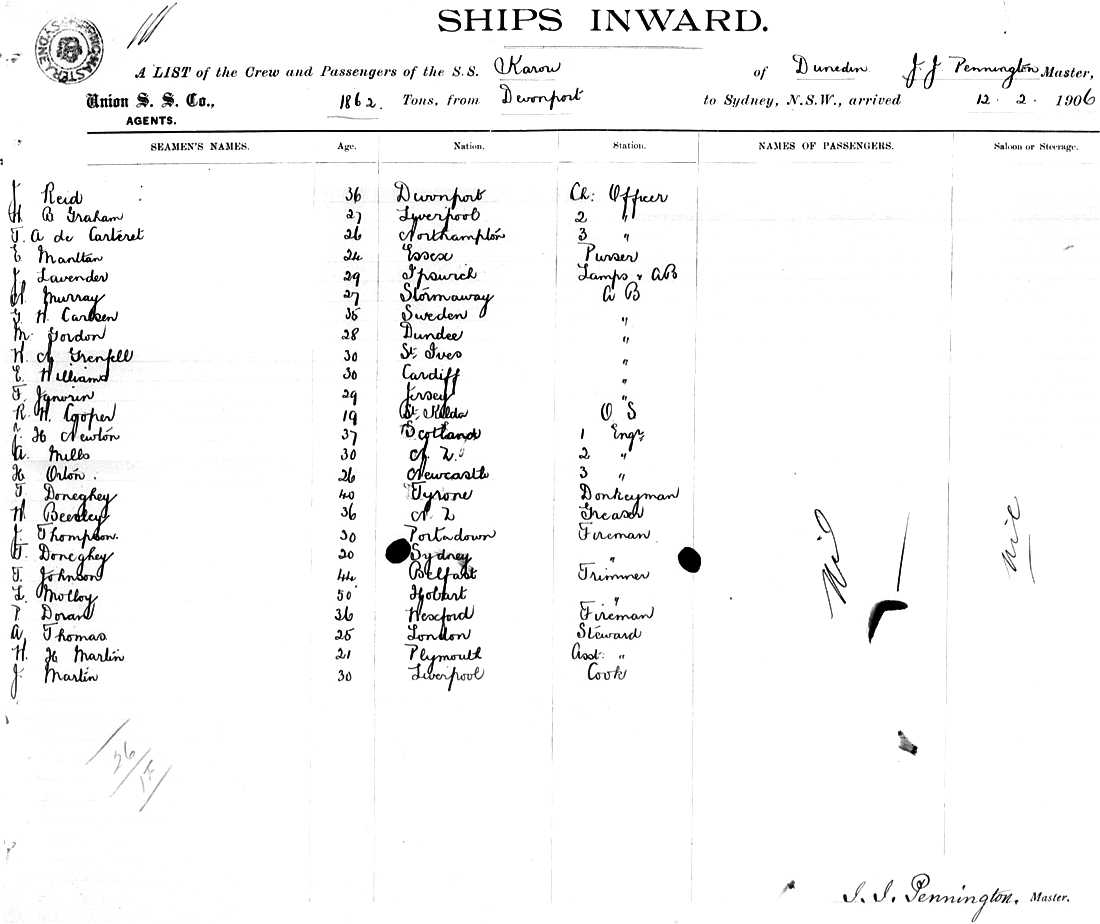 SYDNEY SHIPPING MASTER
SHIPS INWARD.
A LIST of the Crew and Passengers of the S.S. Karori of Dunedin J. J Pennington Master,
Union S. S. Co., 1862. Tons, from Devonport to Sydney, N.S.W., arrived 12. 2. 1906
AGENTS.
SEAMEN'S NAMES. Age. Nation. Station. NAMES OF PASSENGERS. Saloon or Steerage.
J Reid 36 Devonport Ch: Officer
H B Graham 27 Lyverpool 2 "
T. A de Carteret 26 Northampton 3 "
E Manttan 24 Essex Purser
J. Lavender 29 Ipswich Lamps & AB
Murray 27 Stornaway A B
H. Carlsen 35 Sweden "
M. Gordon 28 Dundee "
W. Grenfell 30 St. Ives "
E. Williams 30 Cardiff "
F. 29 Jersey "
R. H. Cooper 19 St. Kilda O S
J. H Newton 37 Scotland 1 Engr
A. Mills 30 N. Z. 2 "
H Orton. 26 Newcastle 3 "
T Doneghey 40 Tyrone Donkeyman
W. Beesley 36 N. Z Greaser
J. Thompson. 30 Portadown Fireman
T. Doneghey 20 Sydney "
T. Johnson 44 Belfast Trimmer
L. Molloy 50 Hobart "
P. Doran 36 Wexford Fireman
A. Thomas 25 London Steward
W. H Martin 21 Plymouth Asst: "
J. Martin 30 Liverpool Cook
Nil
Nil
26
J. J. Pennington. Master.